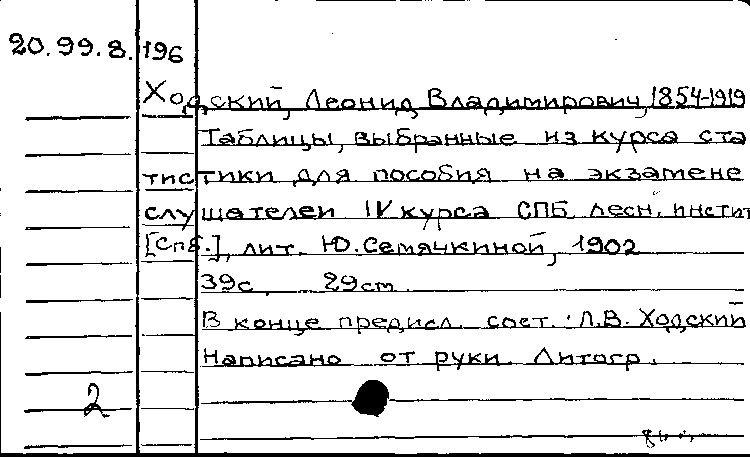 20.99.8.196
Ходский, Леонид Владимирович, 1854-1919
Таблицы, выбранные из курса ста
тистики для пособия на экзамене
слушателей IV курса СПБ. лесн. инстит
[Спб.], лит. Ю. Семячкиной, 1902
39с. 29cm.
В конце предисл. сост.: Л.В. Ходский
Написано от руки. Литогр.
2